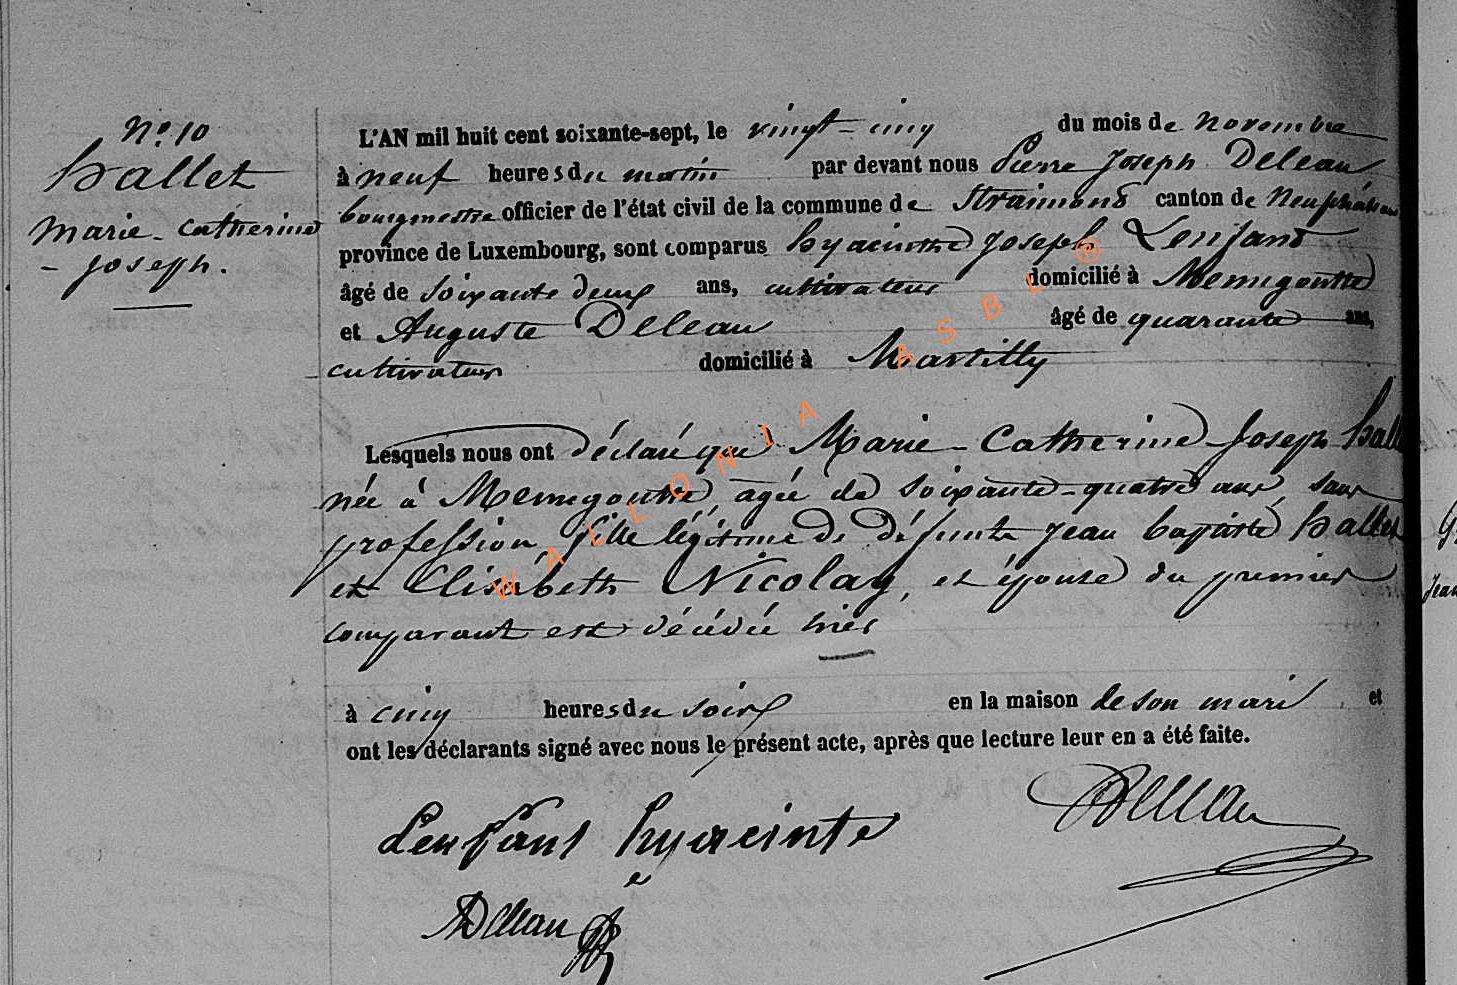 N° 10
hallet
Marie-Catherine
-Joseph.
L'AN mil huit cent soixante-sept, le vingt-cinq du mois de novembre
à neuf heures du matin par devant nous Pierre Joseph Deleau
bourgmestre officier de l'état civil de la commune de Straimont canton de Neufchâteau
province de Luxembourg, sont comparus hyacinthe Joseph Lenfant
âgé de soixante deux ans, cultivateur domicilié à Menugoutte
et Auguste Deleau âgé de quarante ans,
cultivateur domicilié à Martilly
Lesquels nous ont déclaré que Marie-Catherine Joseph hall
née à Menugoutte, agée de soixante-quatre ans, sans
profession, fille légitime de défunts Jean baptiste hallet
et Elisabeth Nicolay, et épouse du premier
comparant est décédée hier
à cinq heures du soir en la maison de son mari et
ont les déclarants signé avec nous le présent acte, après que lecture leur en a été faite.
Lenfant hyacinte
Deleau
ADeleau
WALLONIA ASBL ®